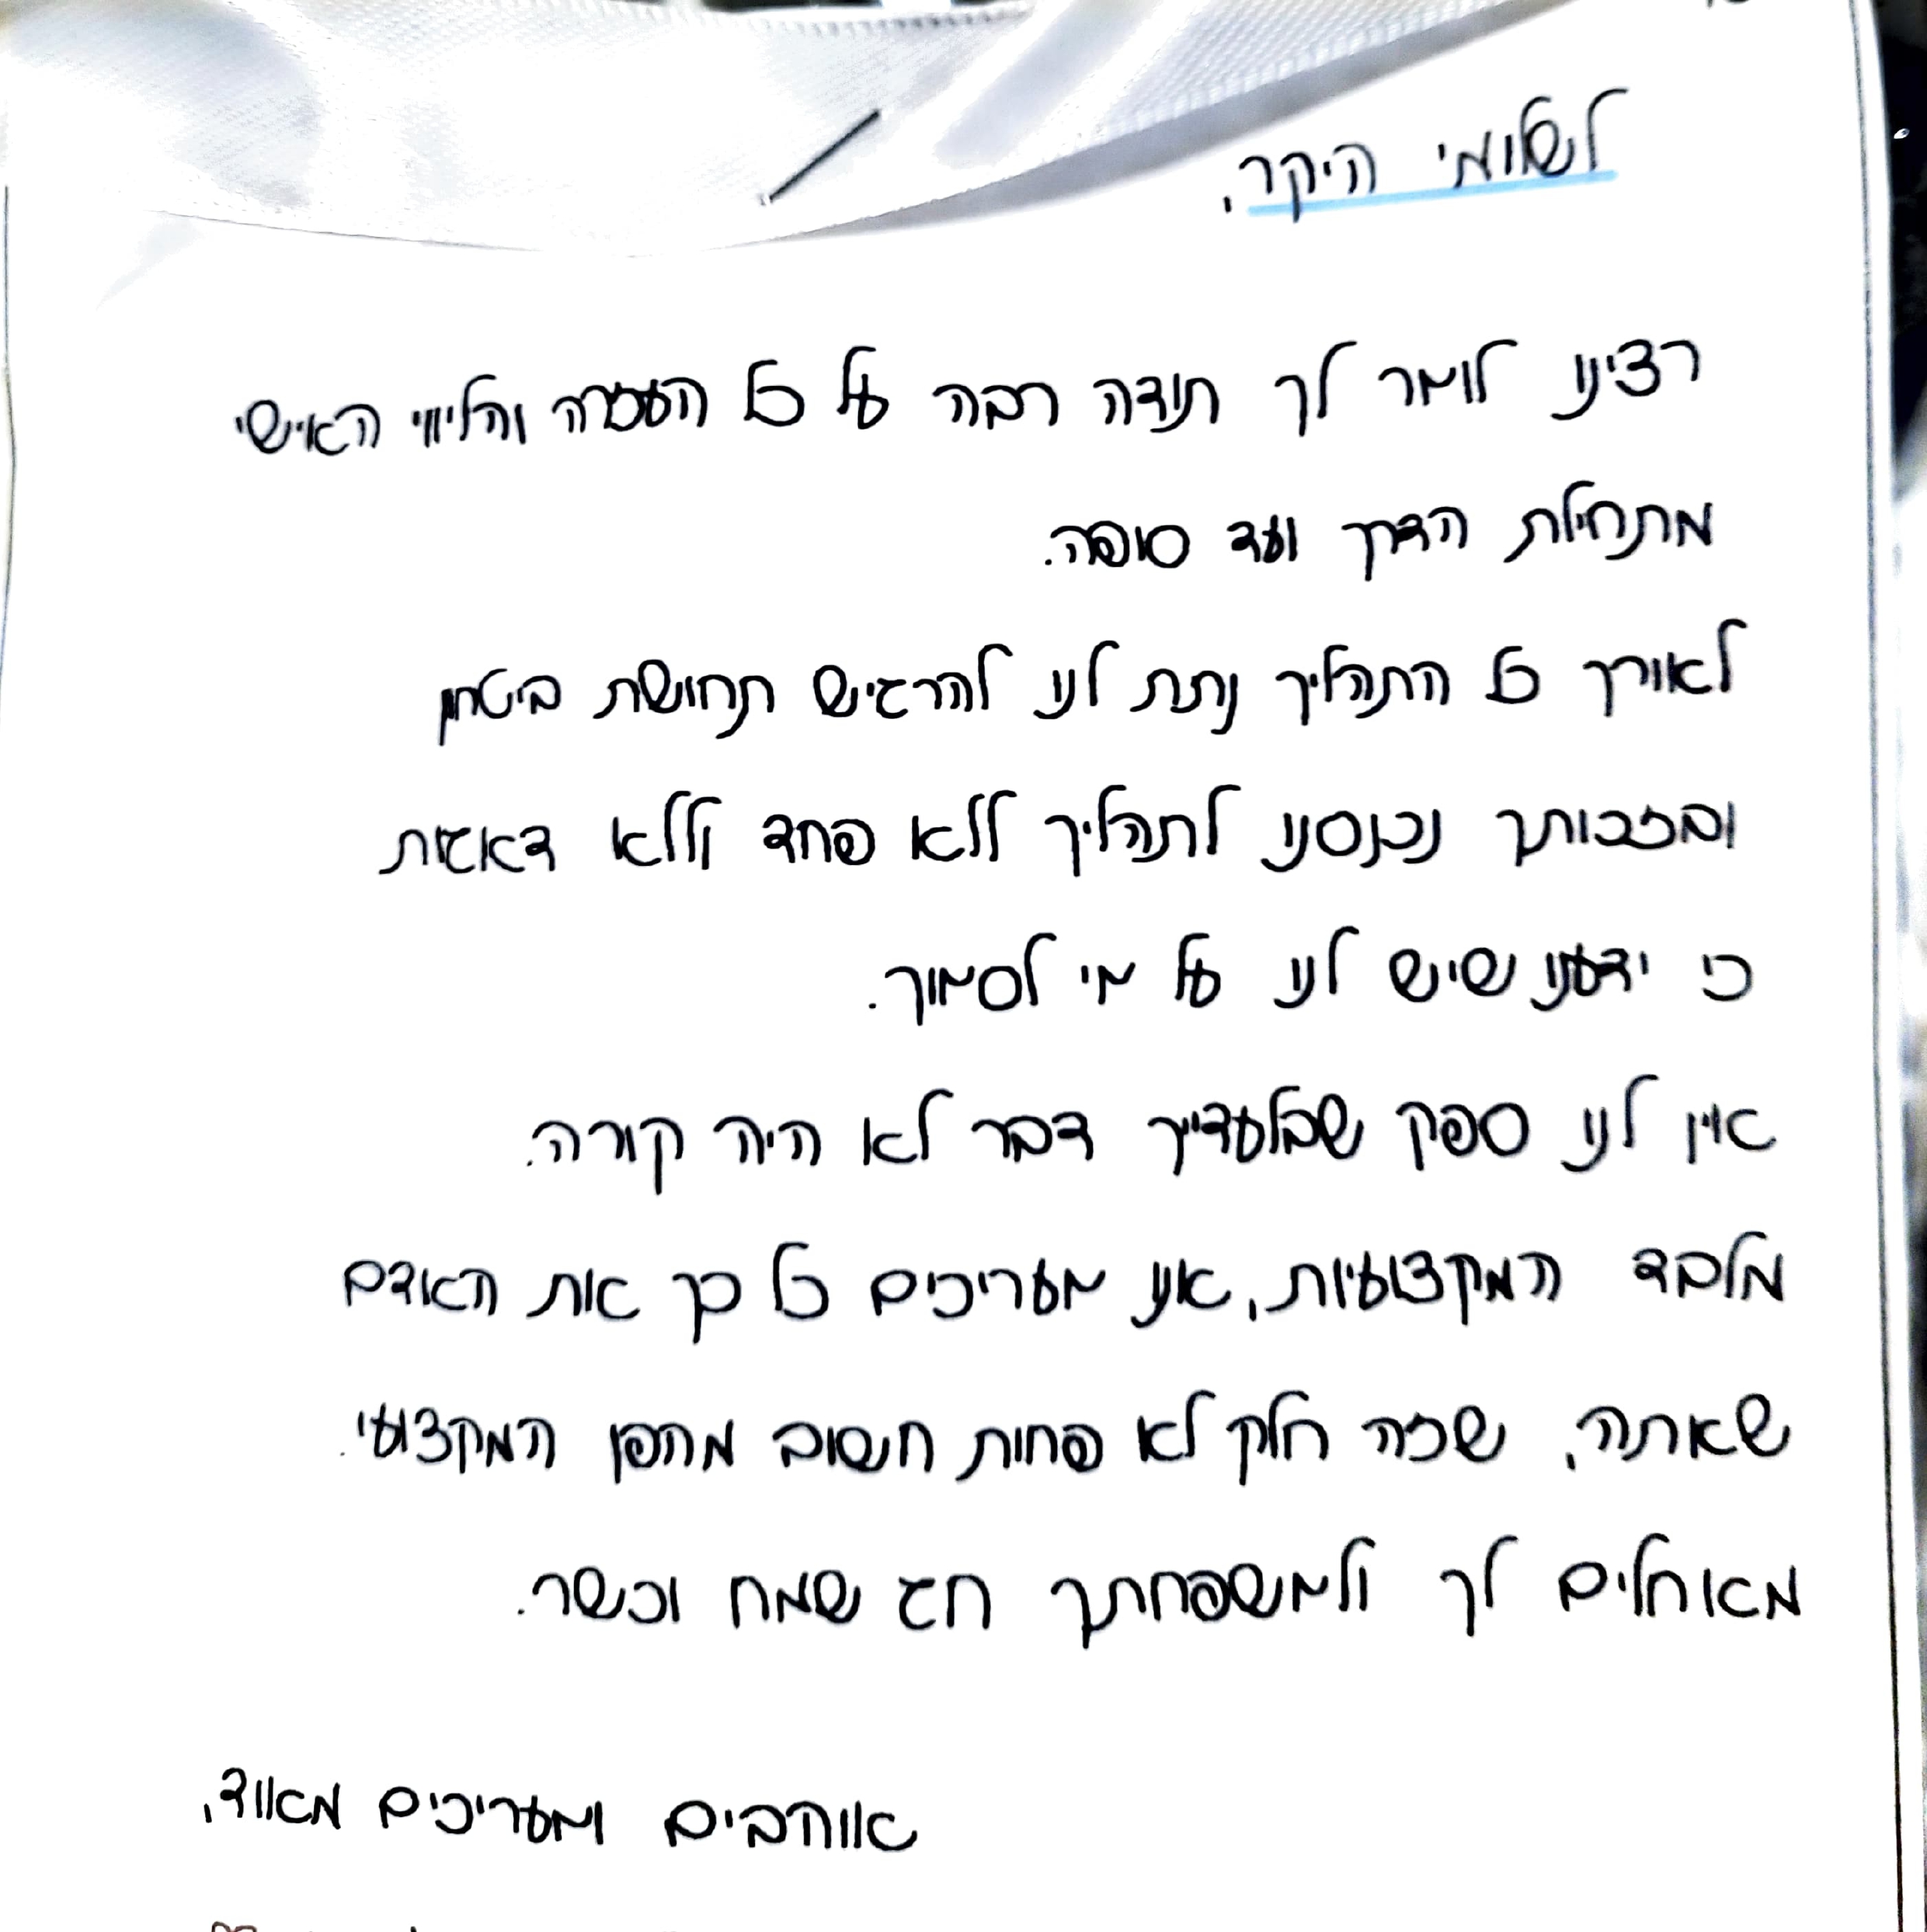 לשלומי היקר,
רצינו לומר לך תודה רבה על כל העזרה והליווי האישי
מתחילת הדרך ועד סופה.
לאורך כל התהליך נתת לנו להרגיש תחושת ביטחון
ובזכותך נכנסנו לתהליך ללא פחד וללא דאגות
כי ידענו שיש לנו על מי לסמוך.
אין לנו ספק שבלעדייך דבר לא היה קורה.
מלבד המקצועיות, אנו מעריכים כל כך את האדם
שאתה, שזה חלק לא פחות חשוב מהפן המקצועי.
מאחלים לך ולמשפחתך חג שמח וכשר.
אוהבים ומעריכים מאוד,